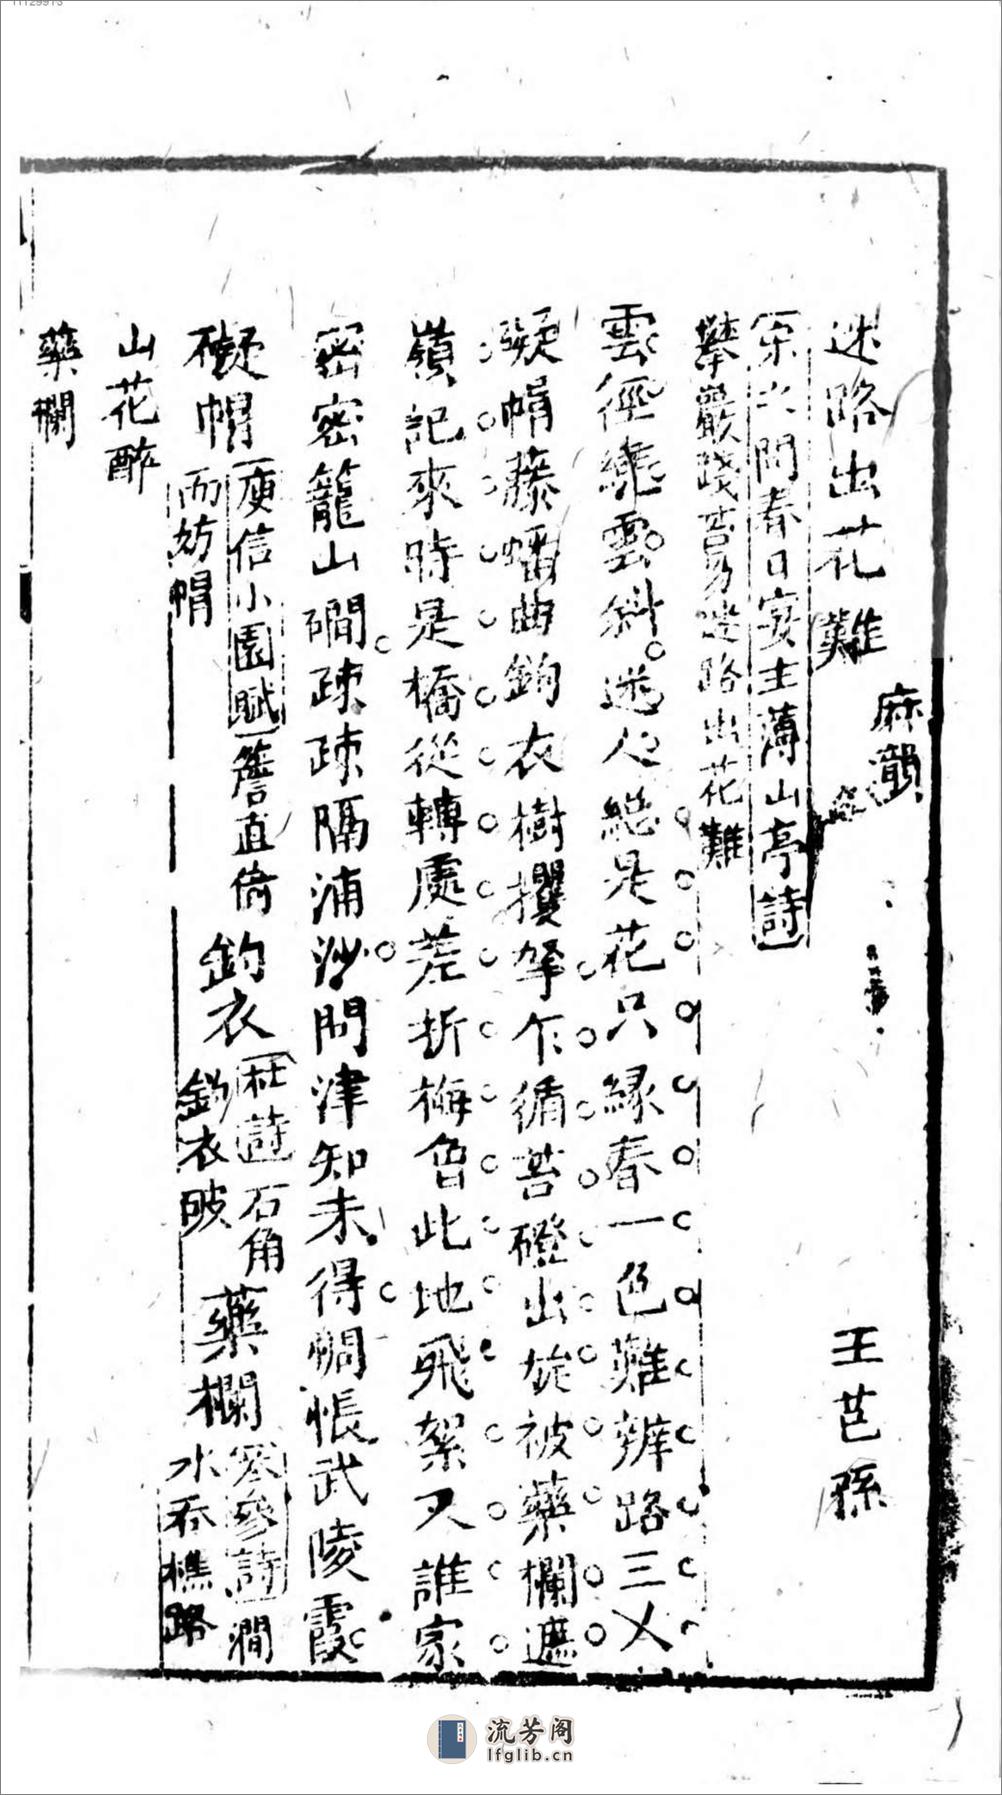 迷路出花難
麻韻
王芑孫
宋之問春日宴主薄山亭詩
攀巖踐苔易迷路出花難
雲徑繞雲斜迷人總是花只緣春一色難辨路三乂
礙帽藤蟠曲鉤衣樹攫拏乍循苔磴出旋被藥欄遮
嶺記來時是橋從轉處差折梅曾此地飛絮又誰家
密密籠山磵疎疎隔浦沙問津知未得惆悵武陵霞
礙帽
庾信小園賦簷直倚
而妨帽
鉤衣
杜詩石角
鉤衣破
藥欄
岑參詩澗
水吞樵路
山花醉
藥欄
流芳阁
lfglib.cn